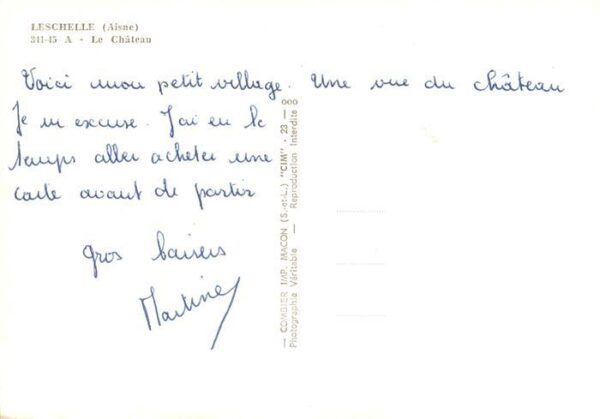 LESCHELLE (Aisne)
311-45 A - Le Château
Voici mon petit village. Une vue du château
Je m'excuse. J'ai eu le
temps aller acheter une
carte avant de partir
gros baisers
Martine
— COMBIER IMP. MACON (S.-et-L.) "CIM" - 23 - 000
Photographie Véritable — Reproduction Interdite